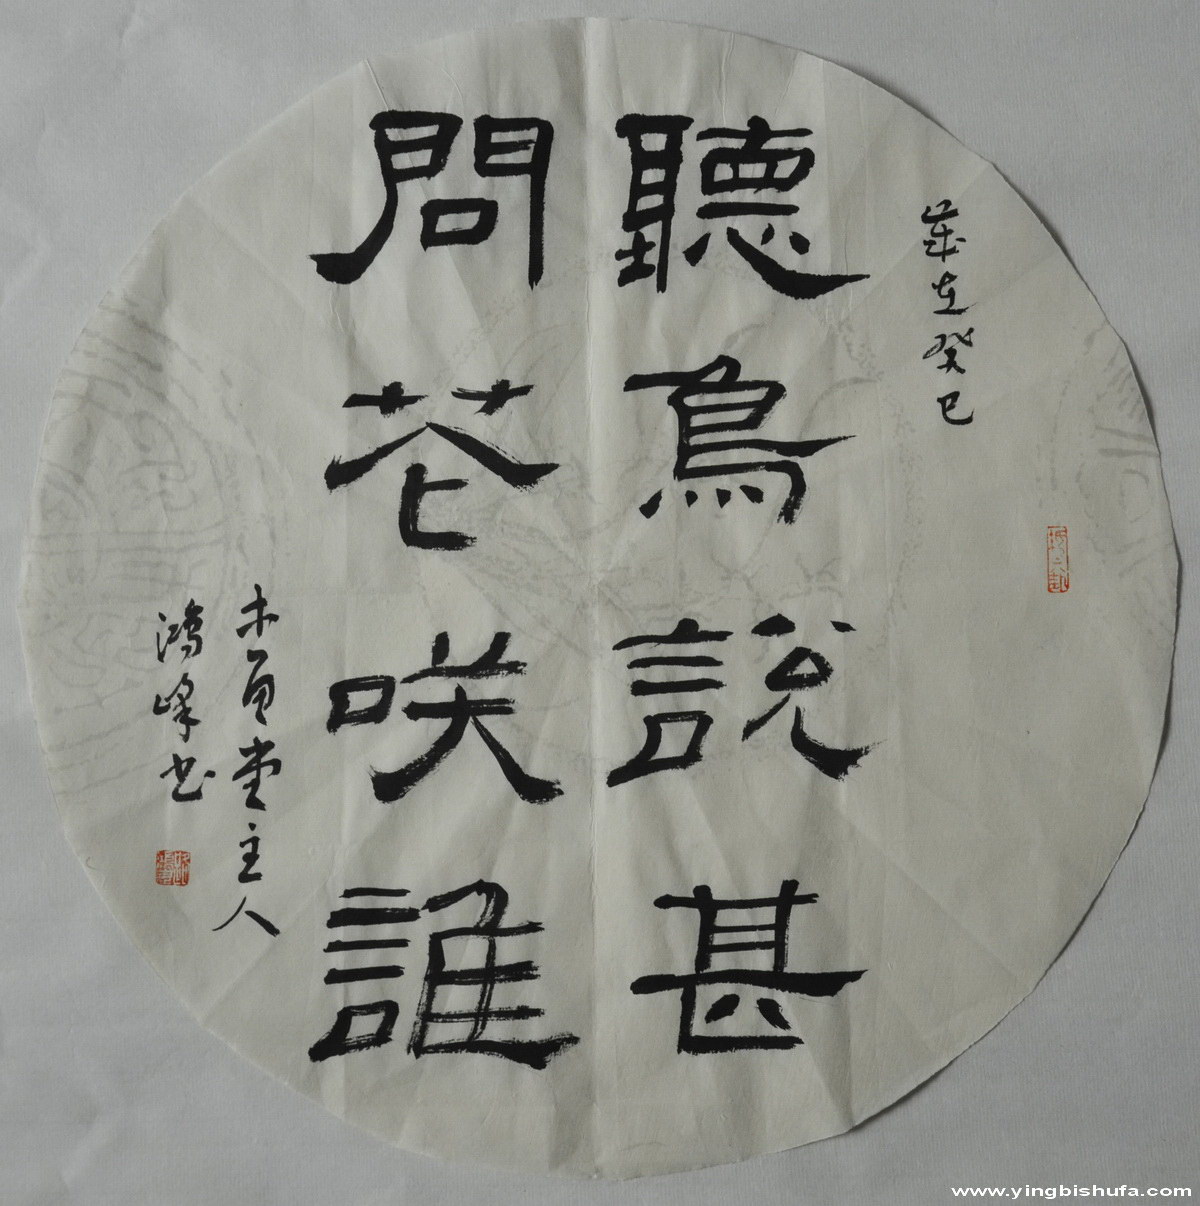 歲在癸巳
聽鳥說甚
問花咲誰
堂主人
鴻峰书
www.yingbishufa.com